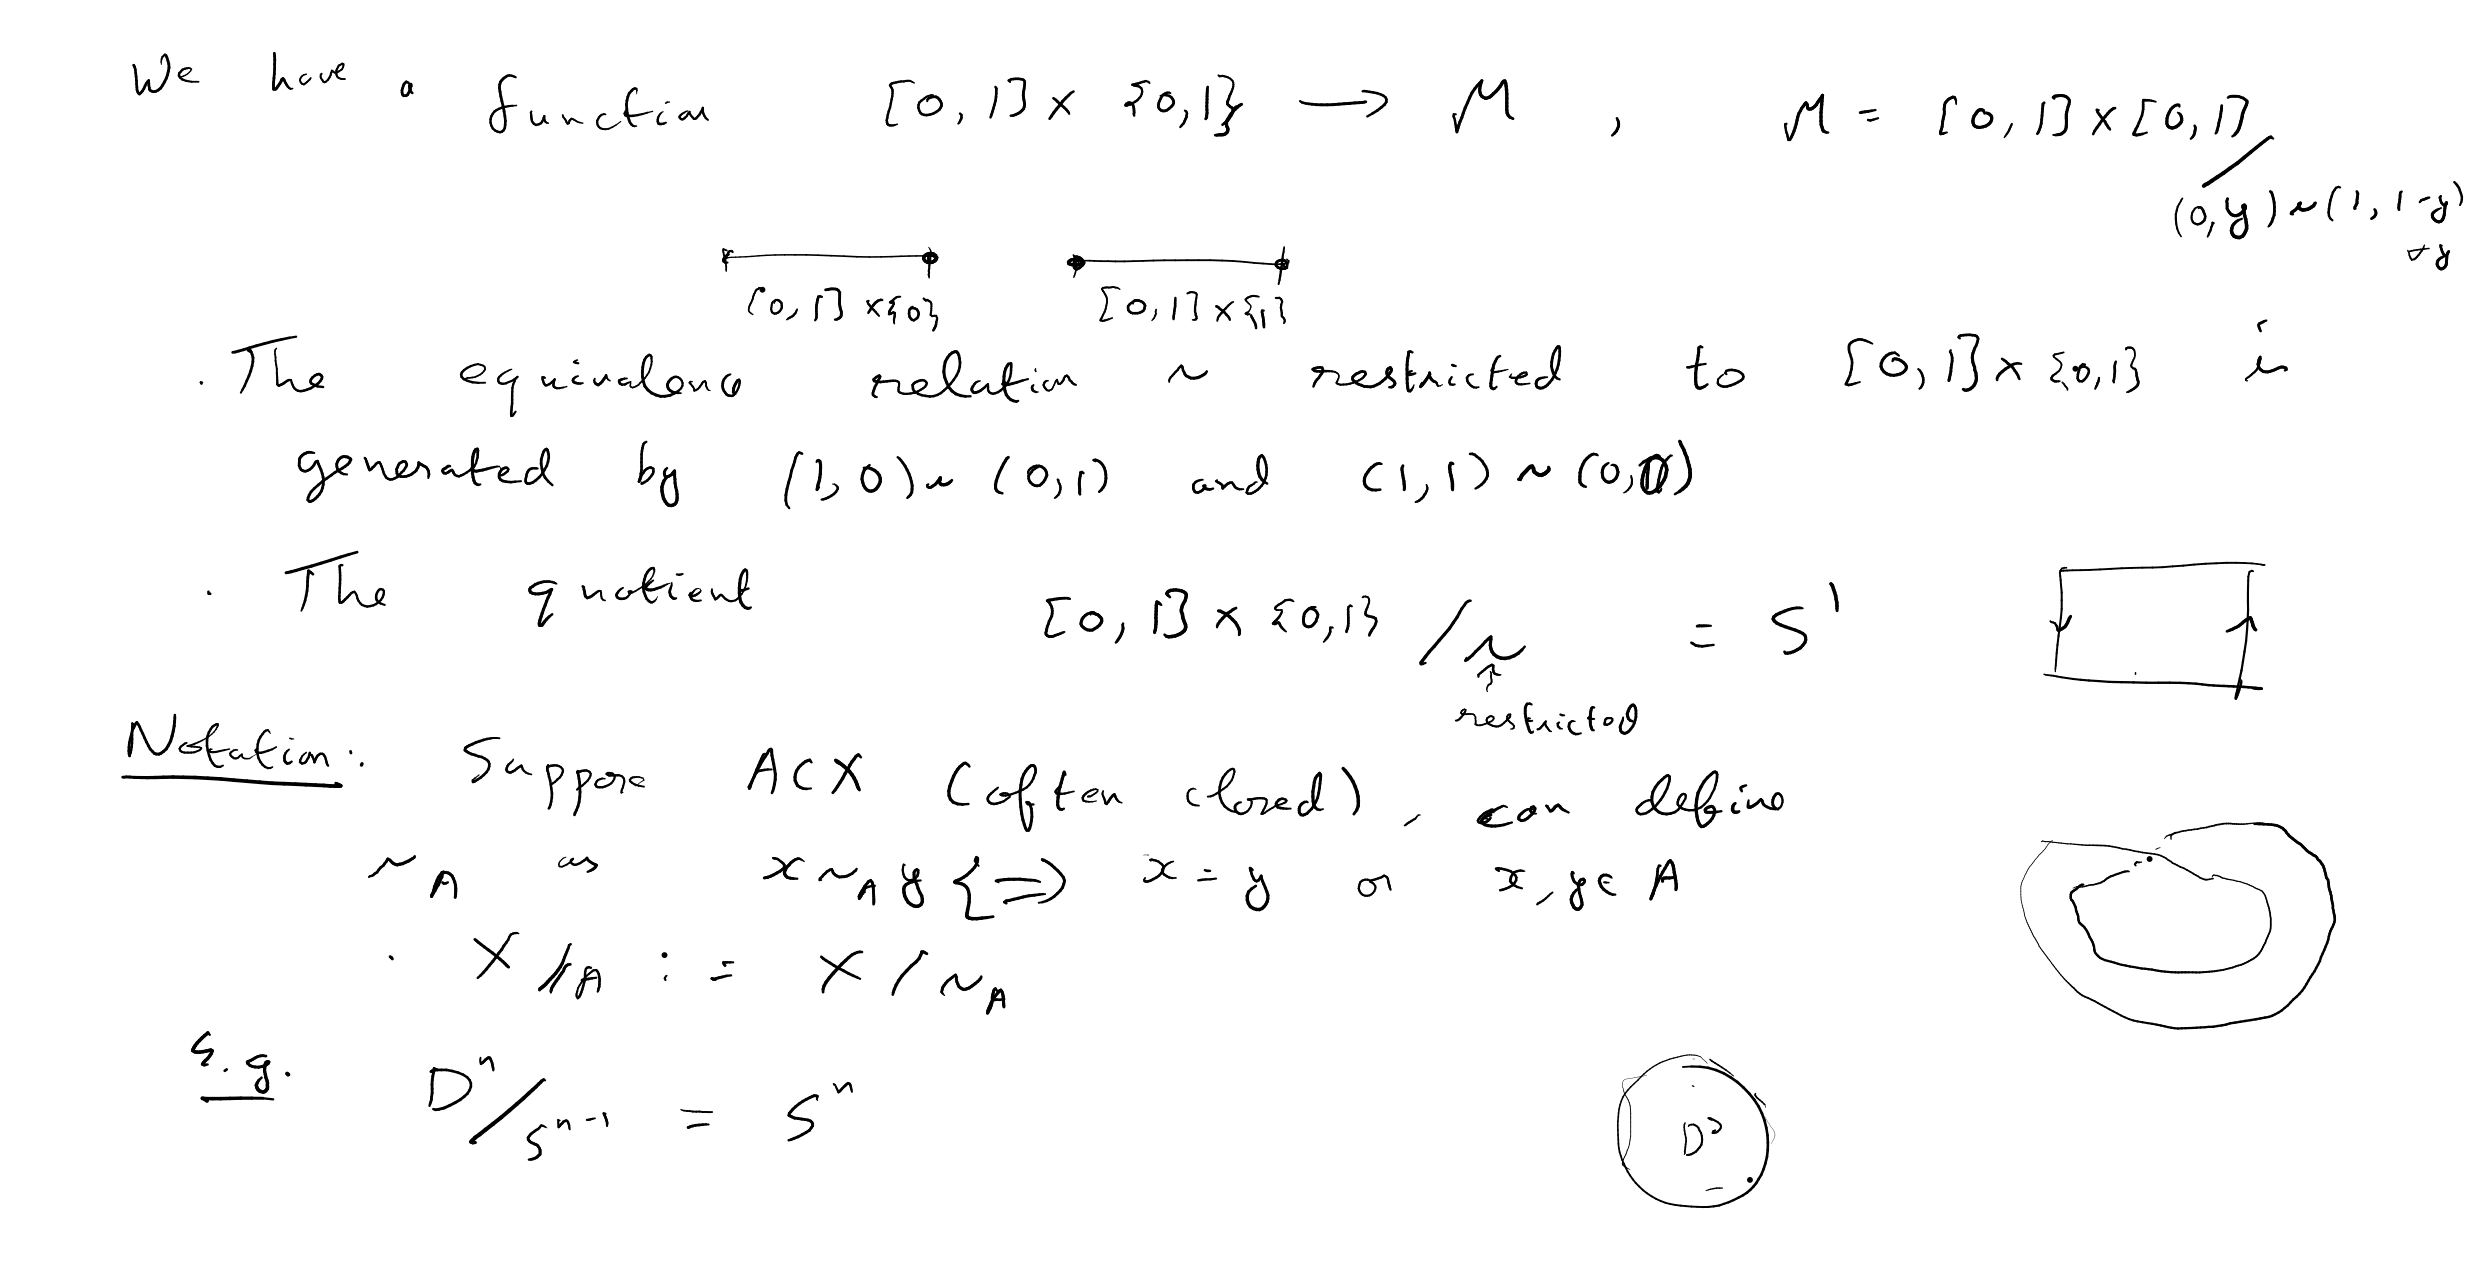 We have a function [0,1] × {0,1} → M , M = [0,1] × [0,1] / (0,y) ~ (1, 1-y) ∀y
[0,1] × {0} [0,1] × {1}
. The equivalence relation ~ restricted to [0,1] × {0,1} is
generated by (1,0) ~ (0,1) and (1,1) ~ (0,0)
. The quotient [0,1] × {0,1} / ~ = S¹
↑
restricted
Notation: Suppose A ⊂ X (often closed), can define
~_A as x ~_A y <=> x = y or x, y ∈ A
. X/A := X / ~_A
E.g. Dⁿ/Sⁿ⁻¹ = Sⁿ
D²